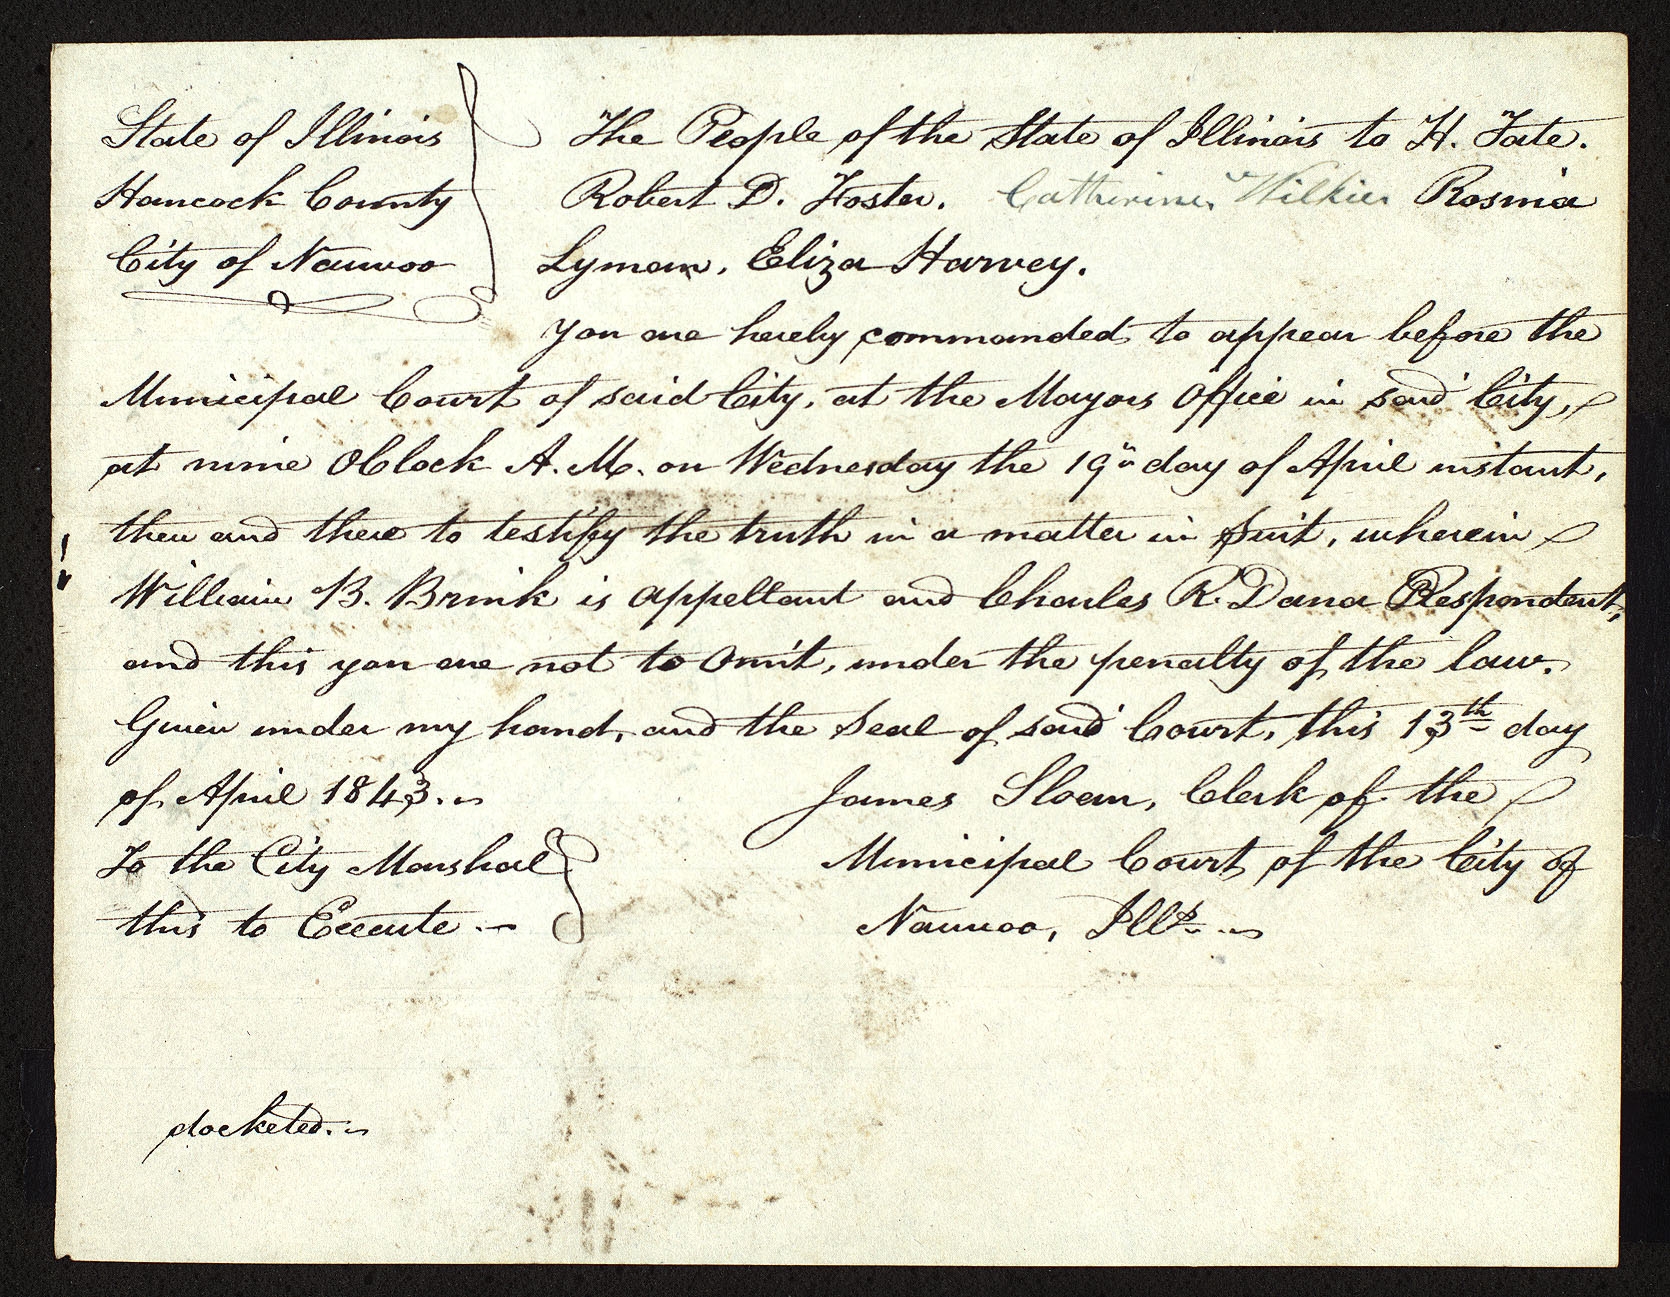 State of Illinois
Hancock County
City of Nauvoo
The People of the State of Illinois to H. Tate.
Robert D. Foster. Catherine Wilkie Rosmia
Lyman, Eliza Harvey.
You are hereby commanded to appear before the
Municipal Court of said City, at the Mayors Office in said City,
at nine OClock A. M. on Wednesday the 19th day of April instant,
then and there to testify the truth in a matter in Suit, wherein
William B. Brink is appellant and Charles R. Dana Respondent,
and this you are not to Omit, under the penalty of the law.
Given under my hand, and the Seal of said Court, this 13th day
of April 1843.
James Sloan, Clerk of the
Municipal Court of the City of
Nauvoo, Ills.
To the City Marshal
this to Execute.
docketed.